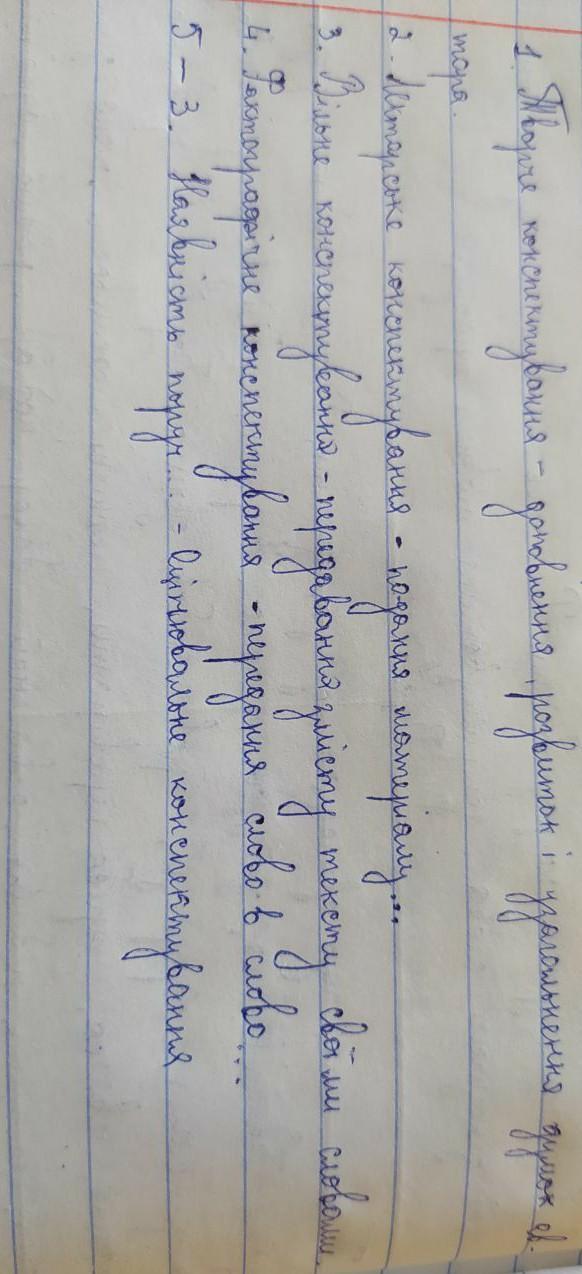 1. Творче конспектування - доповнення, розвиток і узагальнення думок ав-
тора.
2. Лекторське конспектування - подання матеріалу...
3. Вільне конспектування - передавання змісту тексту своїми словами.
4. Фактографічне конспектування - передання слово в слово...
5 - 3. Наявність поруч... - Оцінювальне конспектування